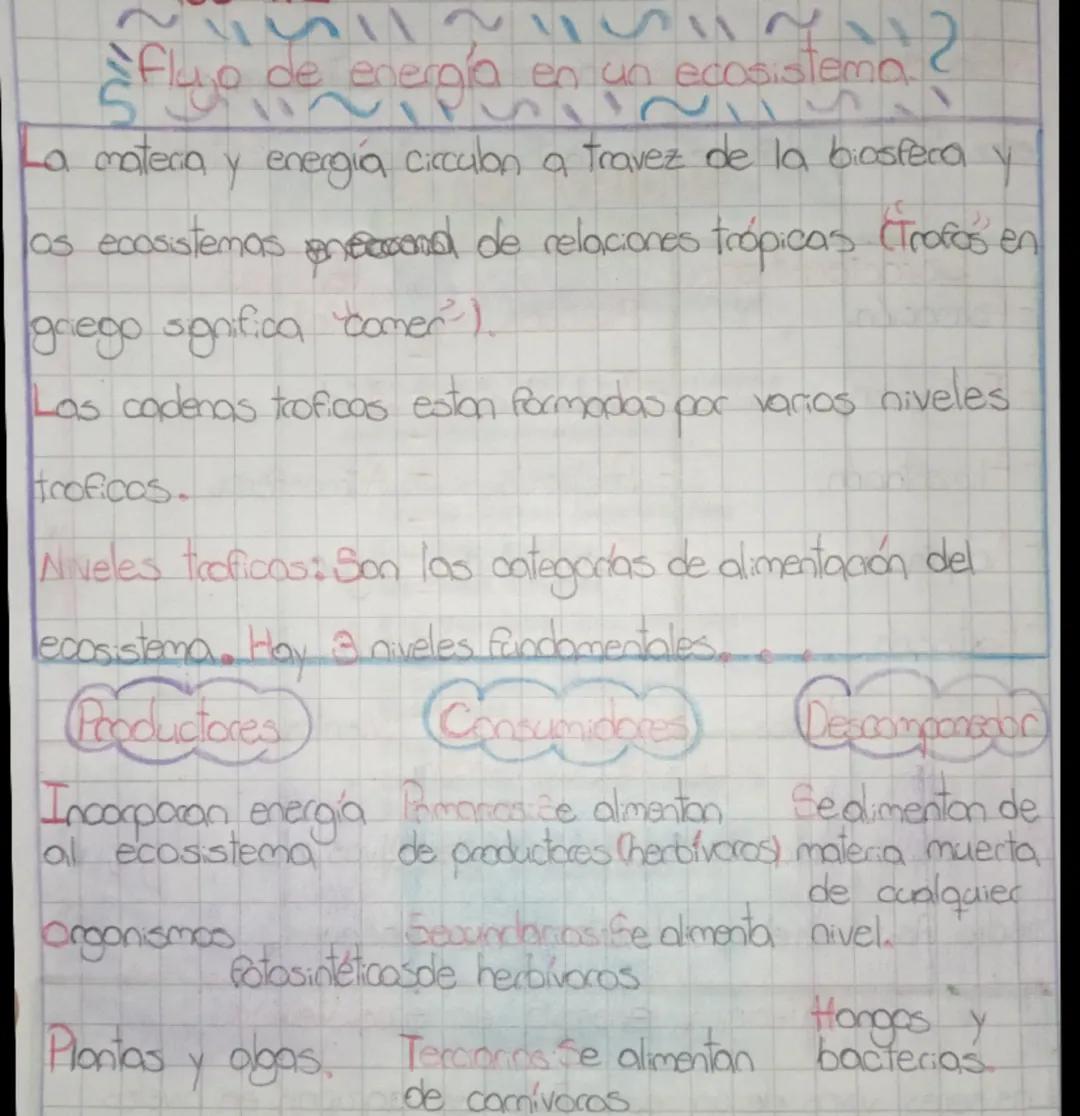 Flujo de energía en un ecosistema.
La materia y energía circulan a travez de la biosfera y
los ecosistemas de relaciones trópicas ("Trofos" en
griego sgnifica "comer").
Las cadenas troficas estan formadas por varios niveles
troficos.
Niveles troficos: Son las categorías de alimentación del
ecosistema. Hay 3 niveles fundamentales...
Productores
Incorporan energía
al ecosistema
Organismos
fotosintéticos
Plantas y algas.
Consumidores
Primarios: Se alimentan
de productores (herbívoros)
Secundarios: Se alimenta
de herbívoros
Terciarios: Se alimentan
de carnívoros
Descomponedor
Se alimentan de
materia muerta
de cualquier
nivel.
Hongos y
bacterias.